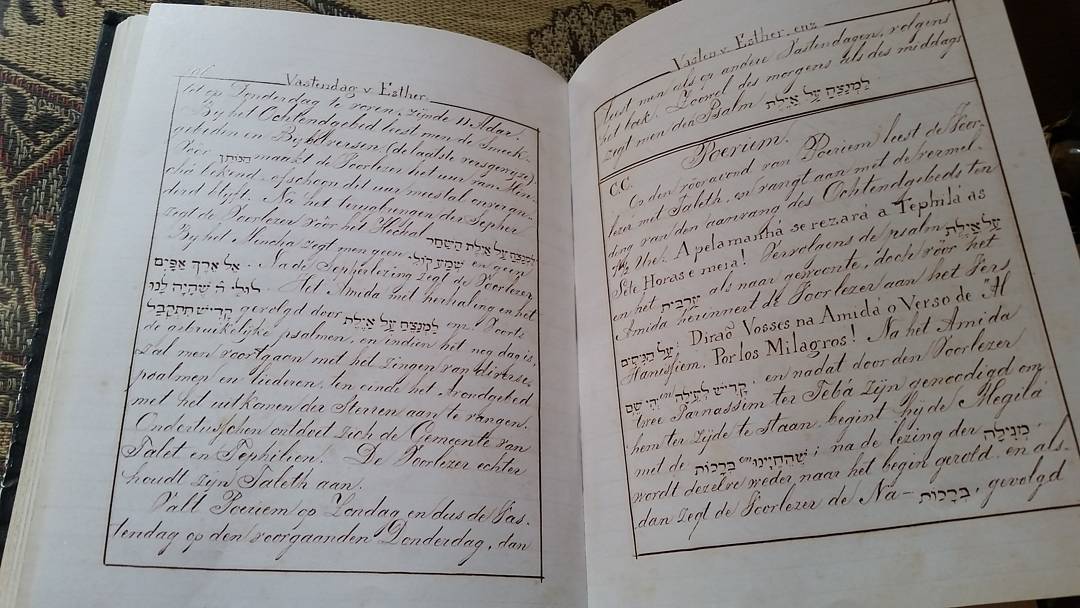 Vastendag v. Esther.
tot op Donderdag te voren, zijnde 11 Adar.
Bij het Ochtendgebed leest men de Smeek-
gebeden en Bijbelversen (de laatste versgewyze).
Vóór הנותן maakt de Voorlezer het uur van Min-
chá bekend, ofschoon dit uur meestal onveran-
derd blijft. Na het terugbrengen der Sepher
zegt de Voorlezer vóór het Hechal לַמְנַצֵּחַ עַל אַיֶּלֶת הַשַּׁחַר
Bij het Mincha zegt men geen שְׁמַע קוֹלִי en geen
אֵל אֶרֶךְ אַפַּיִם. Na de Sepherlezing zegt de Voorlezer
לוּלֵי ה' שֶׁהָיָה לָנוּ. Het Amida met herhaling en het
קַדִּישׁ תִּתְקַבַּל gevolgd door לַמְנַצֵּחַ עַל אַיֶּלֶת enz. Voorts
de gebruikelijke psalmen, en indien het nog dag is,
zal men voortgaan met het zingen van diverse
psalmen en liederen, ten einde het Avondgebed
met het uitkomen der Sterren aan te vangen.
Ondertusschen ontdoet zich de Gemeente van
Talet en Tephilien. De Voorlezer echter
houdt zijn Taleth aan.
Valt Poeriem op Zondag en dus de Vas-
tendag op den voorgaanden Donderdag, dan
Vasten v. Esther. enz
leest men als op andere Vastendagen, volgens
het boek. Zoowel des morgens als des middags
zegt men den Psalm לַמְנַצֵּחַ עַל אַיֶּלֶת
Poeriem.
C.C. Op den vooravond van Poeriem leest de Voor-
lezer met Taleth, en vangt aan met de vermel-
ding van den aanvang des Ochtendgebeds ten
7½ Uhr. A pela manhá se rezará a Tephilá as
Sete Horas e meia! Vervolgens de psalm עַל אַיֶּלֶת
en het עַרְבִית als naar gewoonte, doch vóór het
Amida herinnert de Voorlezer aan het Vers
עַל הַנִּסִּים: Diraõ Vosses na Amidá o Verso de "Al
Hanissiem, Por los Milagros! Na het Amida
קַדִּישׁ לְעֵילָא en יְהִי שֵׁם, en nadat door den Voorlezer
twee Parnassim ter Tebá zijn genoodigd om
hem ter zijde te staan, begint hij de Megilá
met de בְּרָכוֹת en שֶׁהֶחֱיָנוּ; na de lezing der מְגִילָּה,
wordt dezelve weder naar het begin gerold, en als-
dan zegt de Voorlezer de Na- בְּרָכוֹת, gevolgd